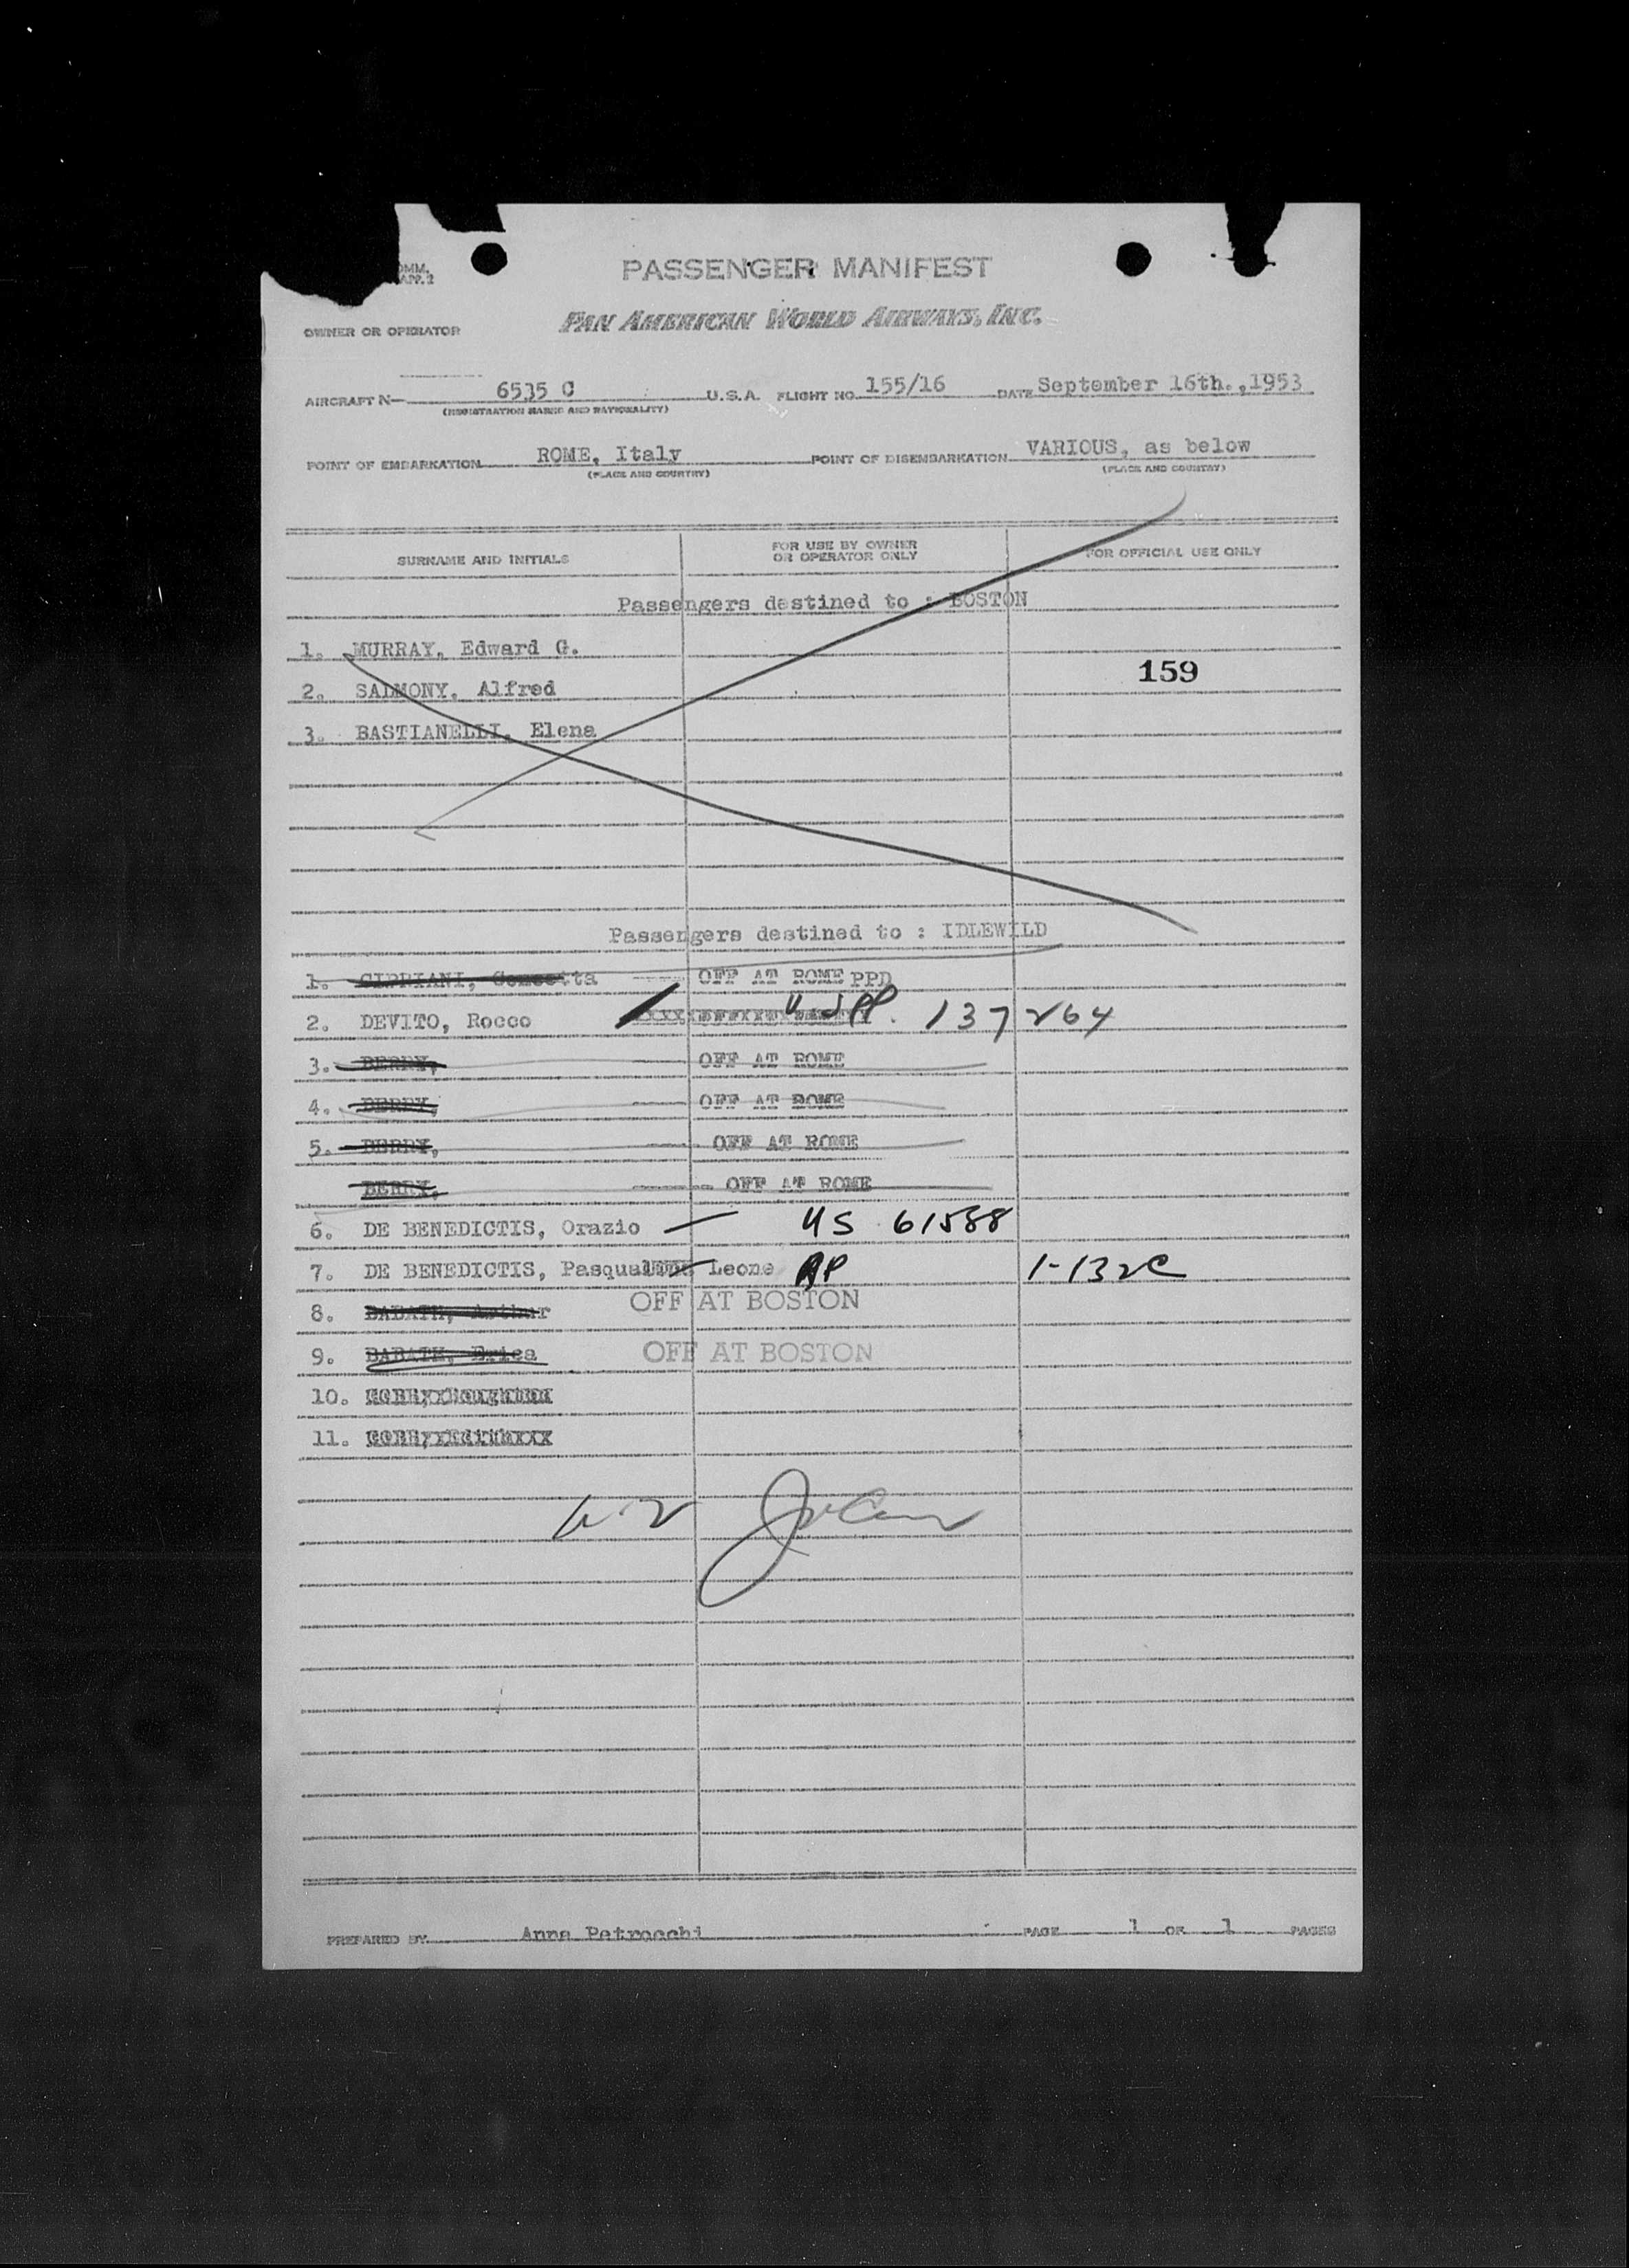 OMM.
APP. 2
PASSENGER MANIFEST
OWNER OR OPERATOR PAN AMERICAN WORLD AIRWAYS, INC.
AIRCRAFT N— 6535 C U.S.A. FLIGHT NO. 155/16 DATE September 16th.,1953
(REGISTRATION MARKS AND NATIONALITY)
POINT OF EMBARKATION ROME, Italy POINT OF DISEMBARKATION VARIOUS, as below
(PLACE AND COUNTRY) (PLACE AND COUNTRY)
SURNAME AND INITIALS FOR USE BY OWNER OR OPERATOR ONLY FOR OFFICIAL USE ONLY
Passengers destined to : BOSTON
1. MURRAY, Edward G.
159
2. SALMONY, Alfred
3. BASTIANELLI, Elena
Passengers destined to : IDLEWILD
1. CIPRIANI, Concetta OFF AT ROME PPD
2. DEVITO, Rocco 137264
3. BERRY, OFF AT ROME
4. BERRY, OFF AT ROME
5. BERRY, OFF AT ROME
BERRY, OFF AT ROME
6. DE BENEDICTIS, Orazio US 61588
7. DE BENEDICTIS, Pasquale Leone AP 1-132C
8. BABATH, Arthur OFF AT BOSTON
9. BABATH, Erica OFF AT BOSTON
10.
11.
PREPARED BY Anna Petrocchi PAGE 1 OF 1 PAGES